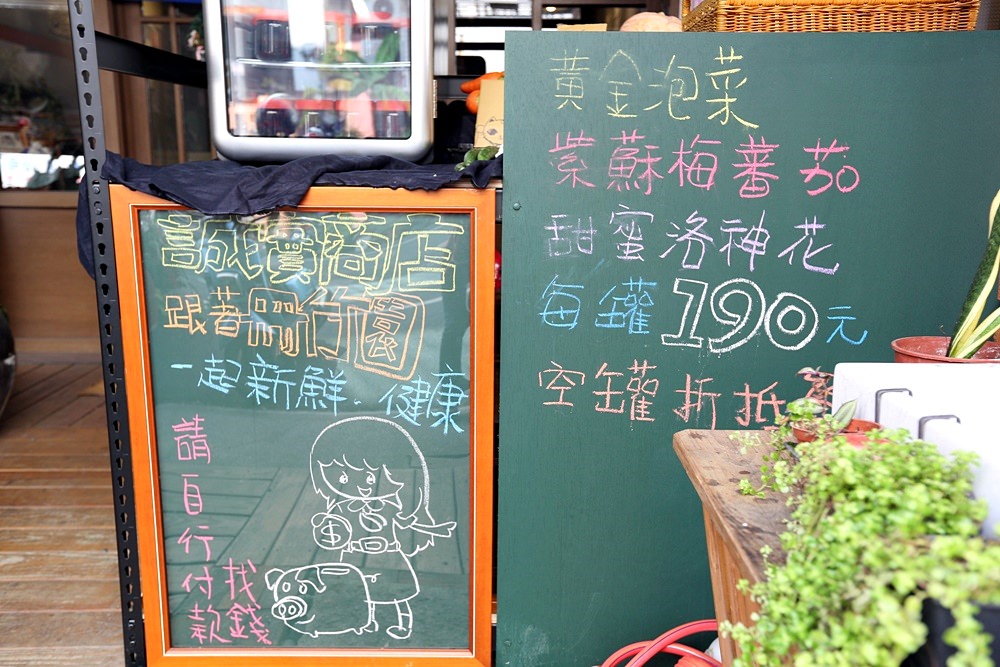 誠實商店
跟著無竹園
一起新鮮、健康
請自行付款找錢
黃金泡菜
紫蘇梅蕃茄
甜蜜洛神花
每罐190元
空罐折抵